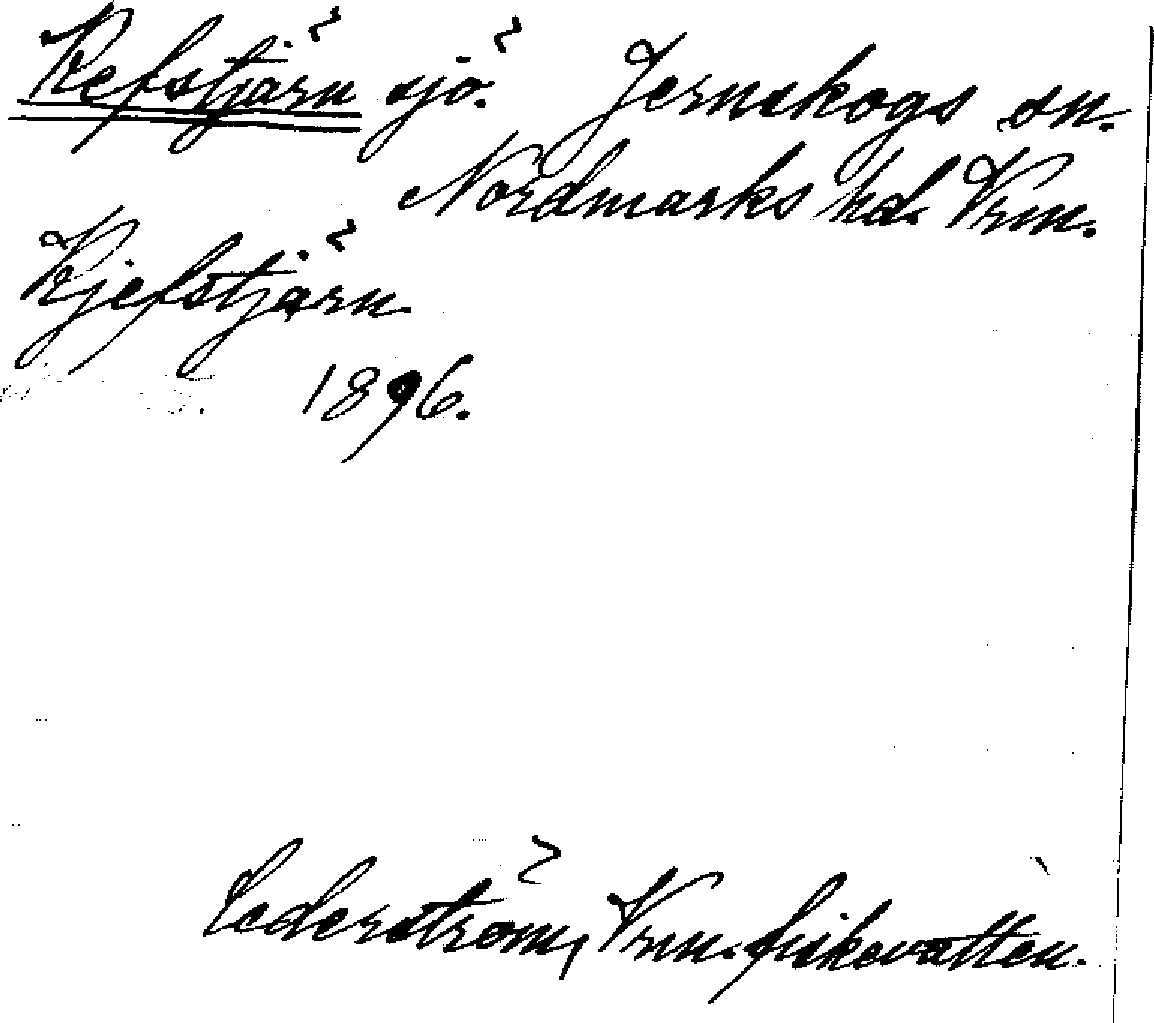 Kefstjärn sjö. Jernskogs sn.
Nordmarks hd. Vrm.
Kjefstjärn
1896.
Cederström, Vrm. fiskevatten.